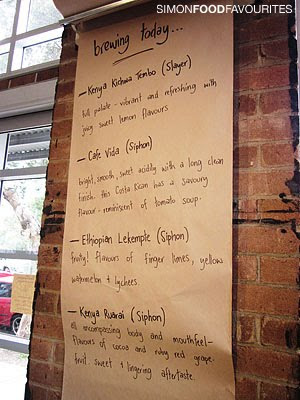 SIMONFOODFAVOURITES
brewing today...
— Kenya Kichwa Tembo (Slayer)
full palate - vibrant and refreshing with
juicy sweet lemon flavours
— Cafe Vida (Siphon)
bright, smooth, sweet acidity with a long clean
finish. this Costa Rican has a savoury
flavour - reminiscent of tomato soup.
— Ethiopian Lekemple (Siphon)
fruity! flavours of finger limes, yellow
watermelon & lychees.
— Kenya Ruarai (Siphon)
all encompassing body and mouthfeel-
flavours of cocoa and ruby red grape
fruit. sweet & lingering aftertaste.